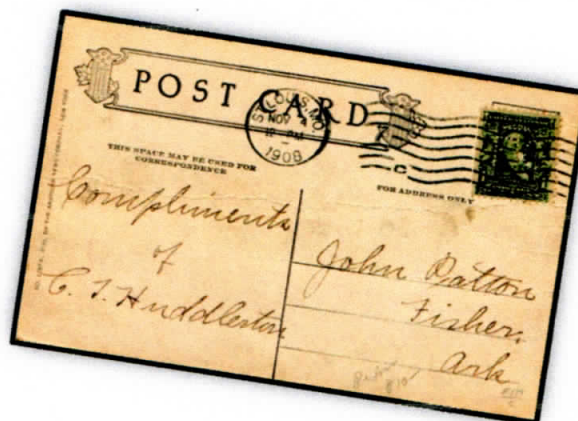 POST CARD
ST. LOUIS, MO.
NOV 4
12-PM
1908
C
THIS SPACE MAY BE USED FOR
CORRESPONDENCE
FOR ADDRESS ONLY
Compliments
of
C. T. Huddleston
John Patton
Fisher,
Ark